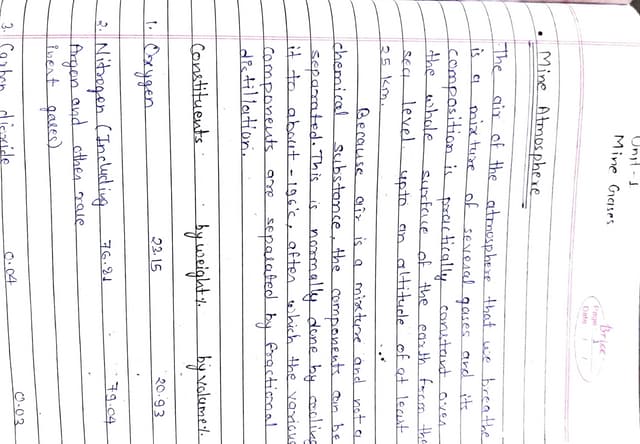 Unit-1
Mine Gases
Page
Date
• Mine Atmosphere
The air of the atmosphere that we breathe
is a mixture of several gases and its
composition is practically constant over
the whole surface of the earth from the
sea level upto an altitude of at least
25 km.
Because air is a mixture and not a
chemical substance, the components can be
separated. This is normally done by cooling
it to about -196°c, after which the various
components are separated by fractional
distillation.
Constituents by weight% by volume%
1. Oxygen 23.15 20.93
2. Nitrogen (Including 76.81 79.04
Argon and other rare
inert gases)
3. Carbon dioxide 0.04 0.03